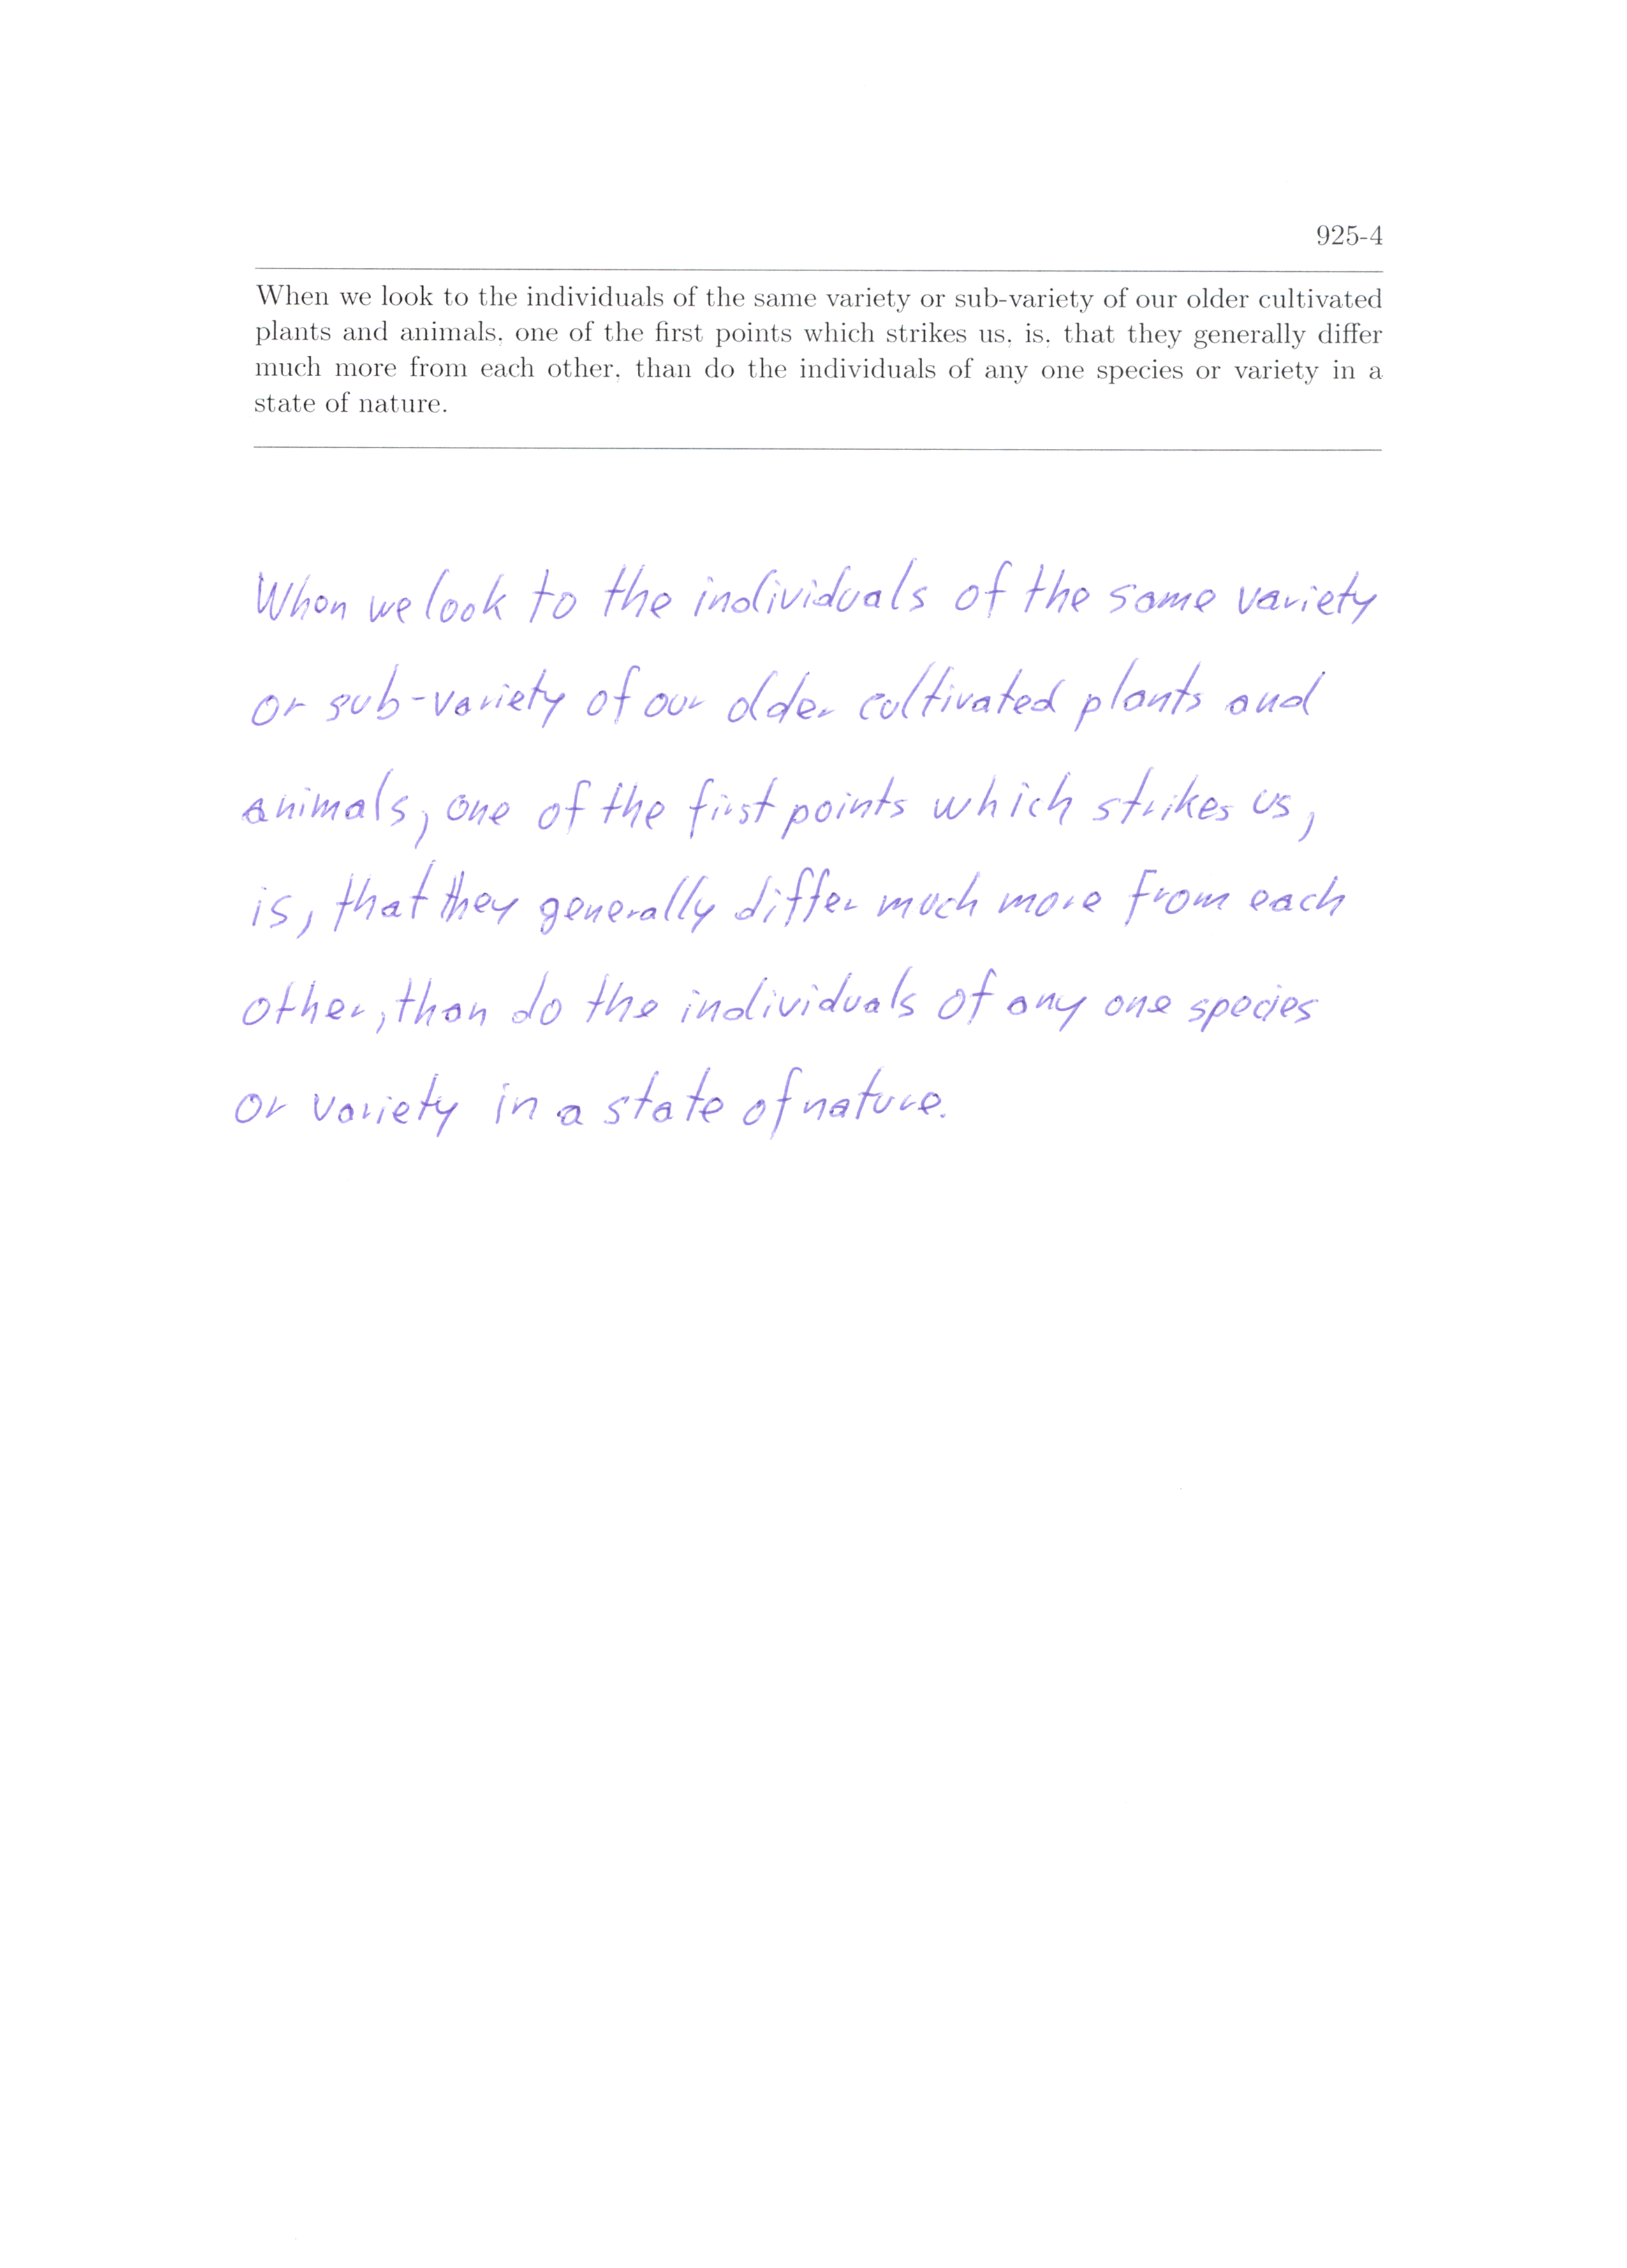 925-4
When we look to the individuals of the same variety or sub-variety of our older cultivated
plants and animals, one of the first points which strikes us, is, that they generally differ
much more from each other, than do the individuals of any one species or variety in a
state of nature.
When we look to the individuals of the same variety
or sub-variety of our older cultivated plants and
animals, one of the first points which strikes us,
is, that they generally differ much more from each
other, than do the individuals of any one species
or variety in a state of nature.